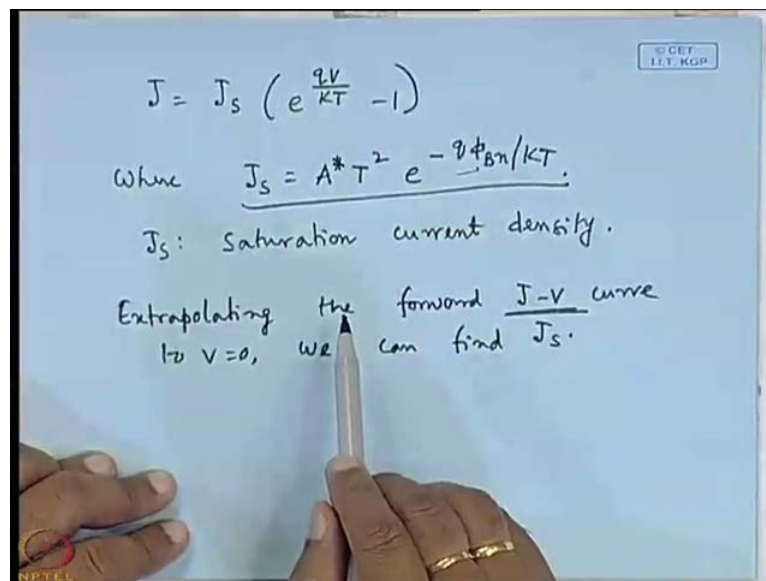 © CET
I.I.T. KGP
J = J_S ( e^{qV/KT} - 1 )
Where J_S = A* T² e^{- qϕ_{Bn}/KT}.
J_S : Saturation current density.
Extrapolating the forward J-V curve
to V=0, we can find J_S.
NPTEL